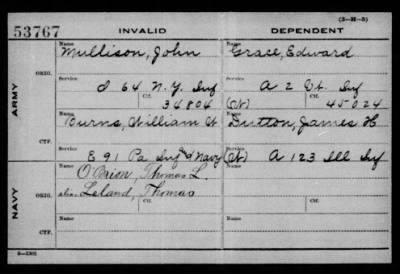 (3-H-3)
53767 INVALID DEPENDENT
Name Name
Mullison, John Grace, Edward
ARMY ORIG. Service Service
I 64 N.Y. Inf A 2 Ct. Inf
Ctf. Ctf.
34804 (Ct) 45024
Name Name
Burns, William W Dutton, James H
CTF. Service Service
E 91 Pa Inf & Navy (Ct) A 123 Ill Inf
NAVY ORIG. Name Name
O'Brien, Thomas L.
alias Leland, Thomas
CTF. Name Name